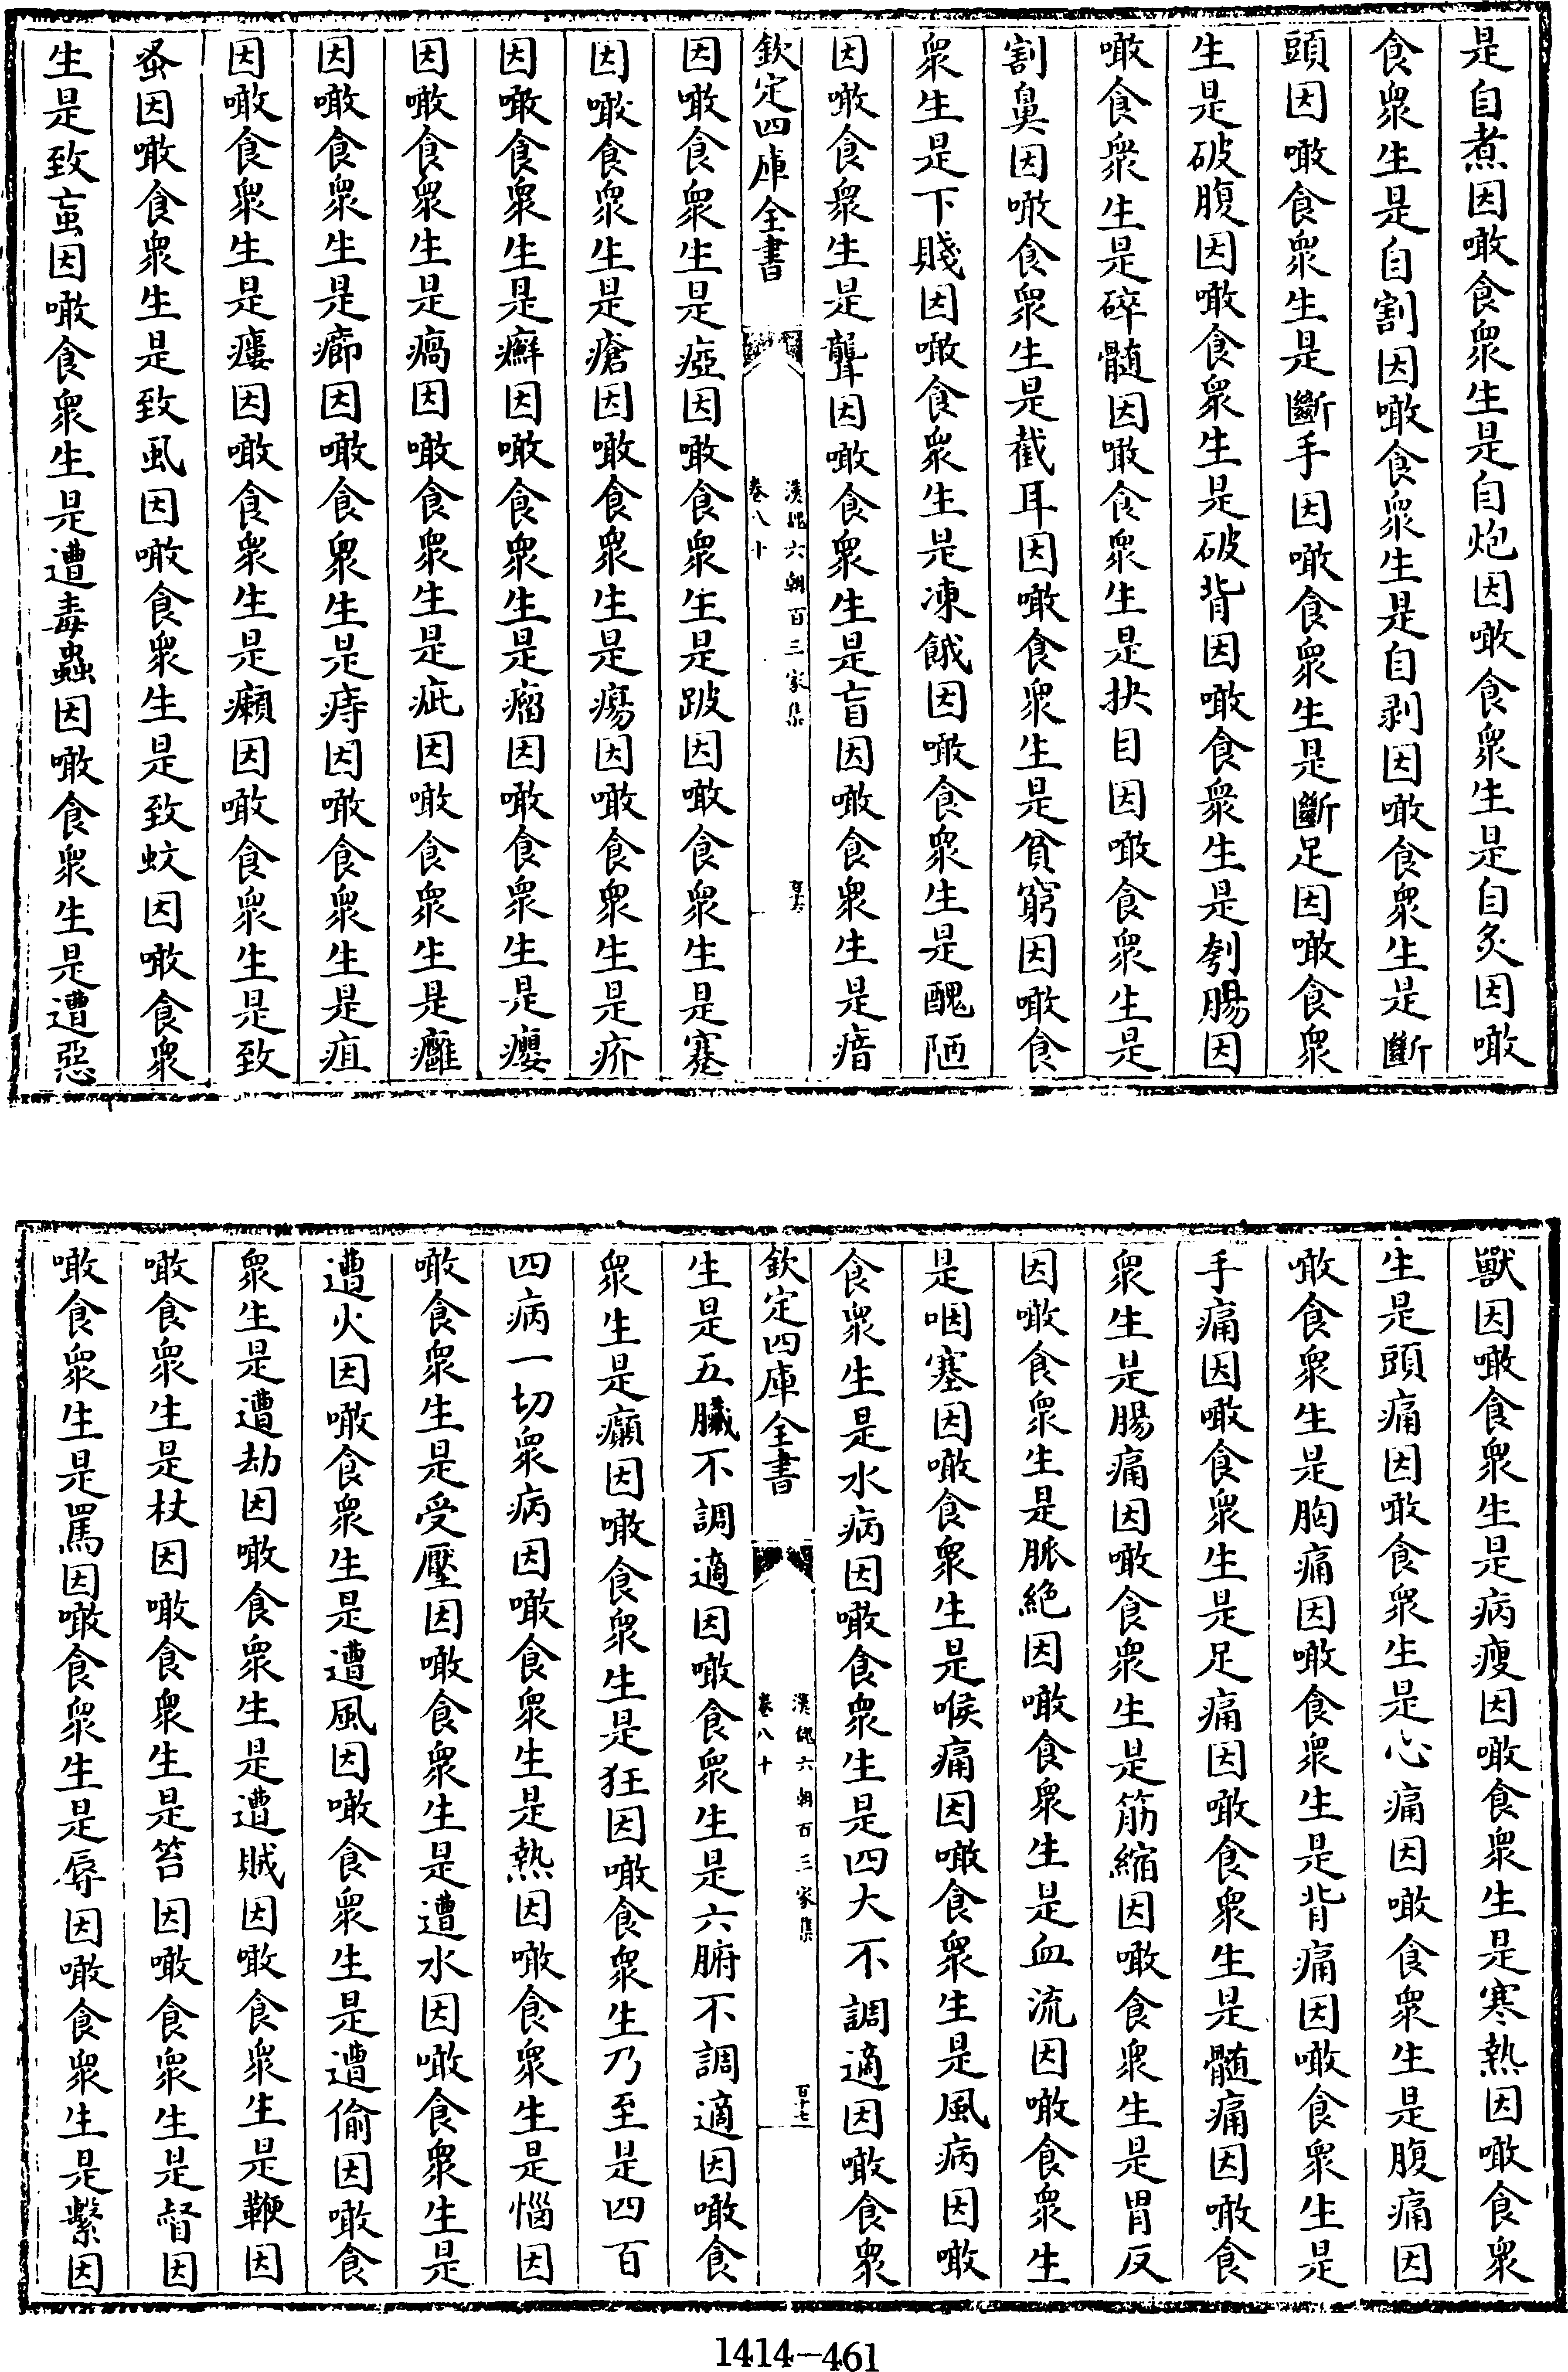 是自煮因噉食衆生是自炮因噉食衆生是自炙因噉
食衆生是自割因噉食衆生是自剥因噉食衆生是斷
頭因噉食衆生是斷手因噉食衆生是斷足因噉食衆
生是破腹因噉食衆生是破背因噉食衆生是刳腸因
噉食衆生是碎髄因噉食衆生是抉目因噉食衆生是
割鼻因噉食衆生是截耳因噉食衆生是貧窮因噉食
衆生是下賤因噉食衆生是凍餓因噉食衆生是醜陋
因噉食衆生是聾因噉食衆生是盲因噉食衆生是瘖
欽定四庫全書
漢魏六朝百三家集
卷八十
百十六
因噉食衆生是瘂因噉食衆生是跛因噉食衆生是蹇
因噉食衆生是瘡因噉食衆生是瘍因噉食衆生是疥
因噉食衆生是癬因噉食衆生是瘤因噉食衆生是癭
因噉食衆生是瘑因噉食衆生是疵因噉食衆生是癰
因噉食衆生是癤因噉食衆生是痔因噉食衆生是疽
因噉食衆生是瘻因噉食衆生是癩因噉食衆生是致
蚤因噉食衆生是致虱因噉食衆生是致蚊因噉食衆
生是致䖟因噉食衆生是遭毒蟲因噉食衆生是遭惡
獸因噉食衆生是病瘦因噉食衆生是寒熱因噉食衆
生是頭痛因噉食衆生是心痛因噉食衆生是腹痛因
噉食衆生是胸痛因噉食衆生是背痛因噉食衆生是
手痛因噉食衆生是足痛因噉食衆生是髄痛因噉食
衆生是腸痛因噉食衆生是筋縮因噉食衆生是胃反
因噉食衆生是脈絶因噉食衆生是血流因噉食衆生
是咽塞因噉食衆生是喉痛因噉食衆生是風病因噉
食衆生是水病因噉食衆生是四大不調適因噉食衆
欽定四庫全書
漢魏六朝百三家集
卷八十
百十七
生是五臟不調適因噉食衆生是六腑不調適因噉食
衆生是癲因噉食衆生是狂因噉食衆生乃至是四百
四病一切衆病因噉食衆生是熱因噉食衆生是惱因
噉食衆生是受壓因噉食衆生是遭水因噉食衆生是
遭火因噉食衆生是遭風因噉食衆生是遭偷因噉食
衆生是遭劫因噉食衆生是遭賊因噉食衆生是鞭因
噉食衆生是杖因噉食衆生是笞因噉食衆生是督因
噉食衆生是罵因噉食衆生是辱因噉食衆生是繫因
1414-461